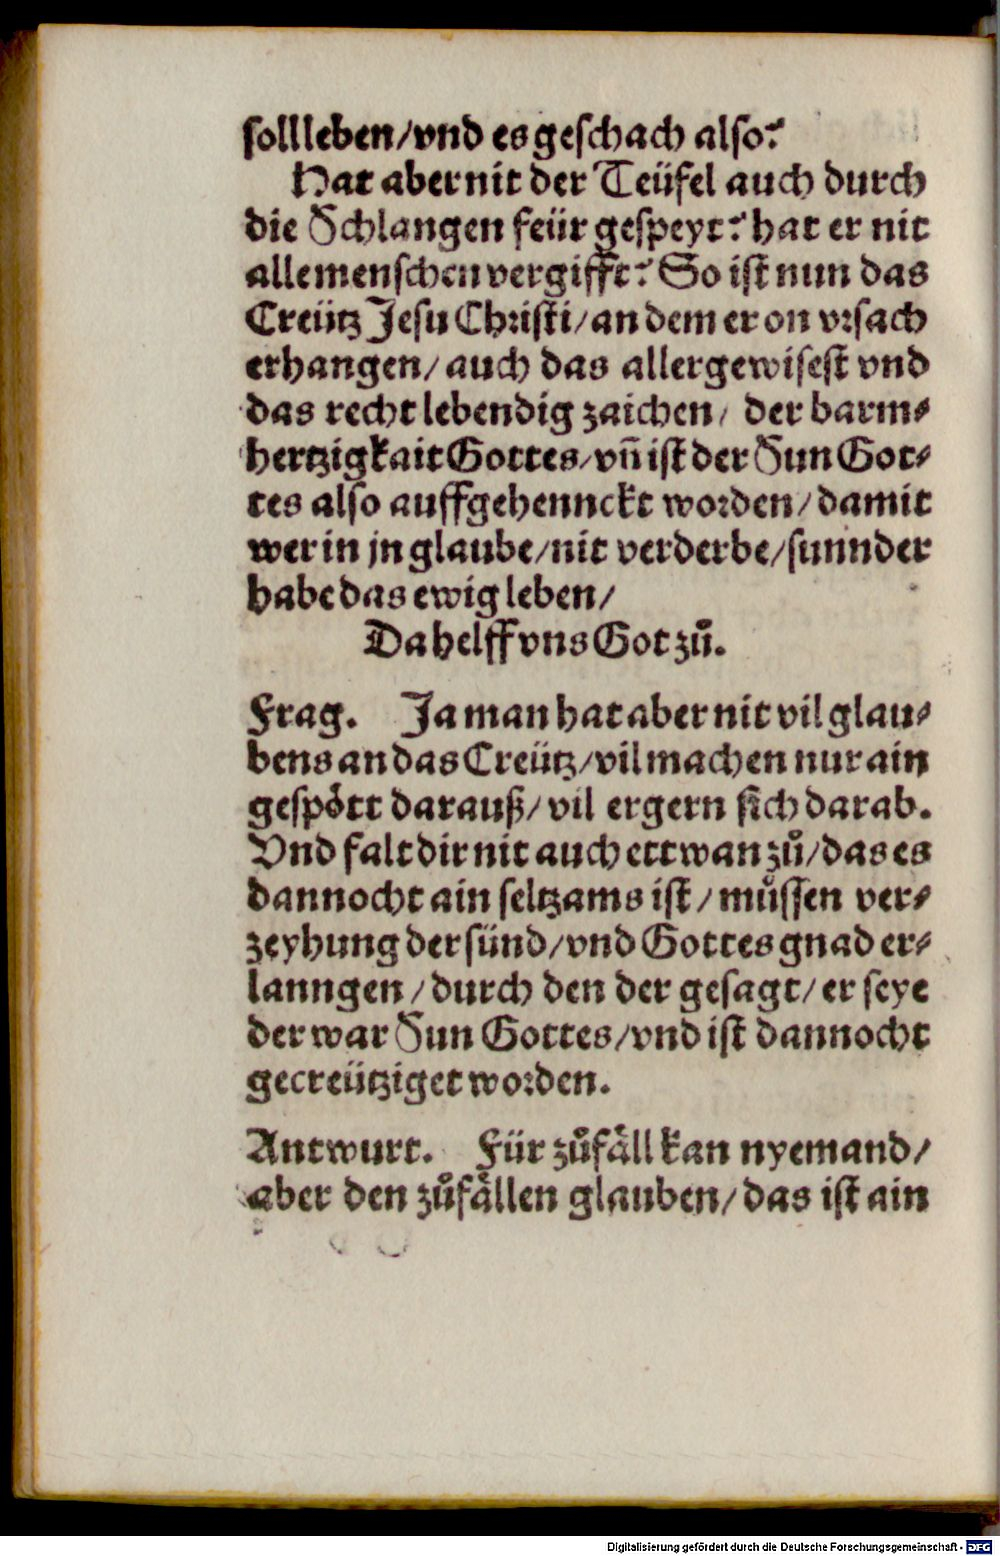 soll leben/ vnd es geschach also?
Hat aber nit der Teüfel auch durch
die Schlangen feür gespeyt? hat er nit
alle menschen vergifft? So ist nun das
Creütz Jesu Christi/ an dem er on vrsach
erhangen/ auch das allergewisest vnd
das recht lebendig zaichen/ der barm⸗
hertzigkait Gottes/ vñ ist der Sun Got⸗
tes also auffgehennckt worden/ damit
wer in jn glaube/ nit verderbe/ sunnder
habe das ewig leben/
Da helff vns Got zů.
Frag. Ja man hat aber nit vil glau⸗
bens an das Creütz/ vil machen nur ain
gespött darauß/ vil ergern sich darab.
Vnd falt dir nit auch ettwan zů/ das es
dannocht ain seltzams ist/ müssen ver⸗
zeyhung der sünd/ vnd Gottes gnad er⸗
lanngen/ durch den der gesagt/ er seye
der war Sun Gottes/ vnd ist dannocht
gecreütziget worden.
Antwurt. Für zůfäll kan nyemand/
aber den zůfällen glauben/ das ist ain
Digitalisierung gefördert durch die Deutsche Forschungsgemeinschaft - DFG